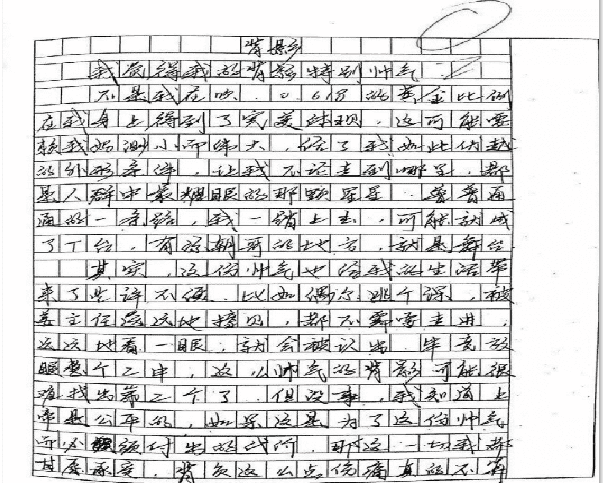 背影
我觉得我的背影特别帅气
不是我在吹，0.618的黄金比例
在我身上得到了完美体现，这可能要
我妈 ，给了我如此优越
的外形条件，让我不论走到哪里，都
是人群中最耀眼的那颗星星。普普通
通的一条路，我一踏上去，可能就成
了T台，有我朝哥的地方，就是舞台
其实，这份帅气也给我的生活带
来了些许不便。比如偶尔逃个课，被
姜主任远远地撞见，都不需要走进，
远远地看一眼，就会被认出。毕竟放
眼整个二中，这么帅气的背影可能很
难找出第二个了。但没事，我知道上
帝是公平的，如果这是为了这份帅气
而必须付出的代价，那这一切我都
甘愿承受，背负这么点伤痛真的不算